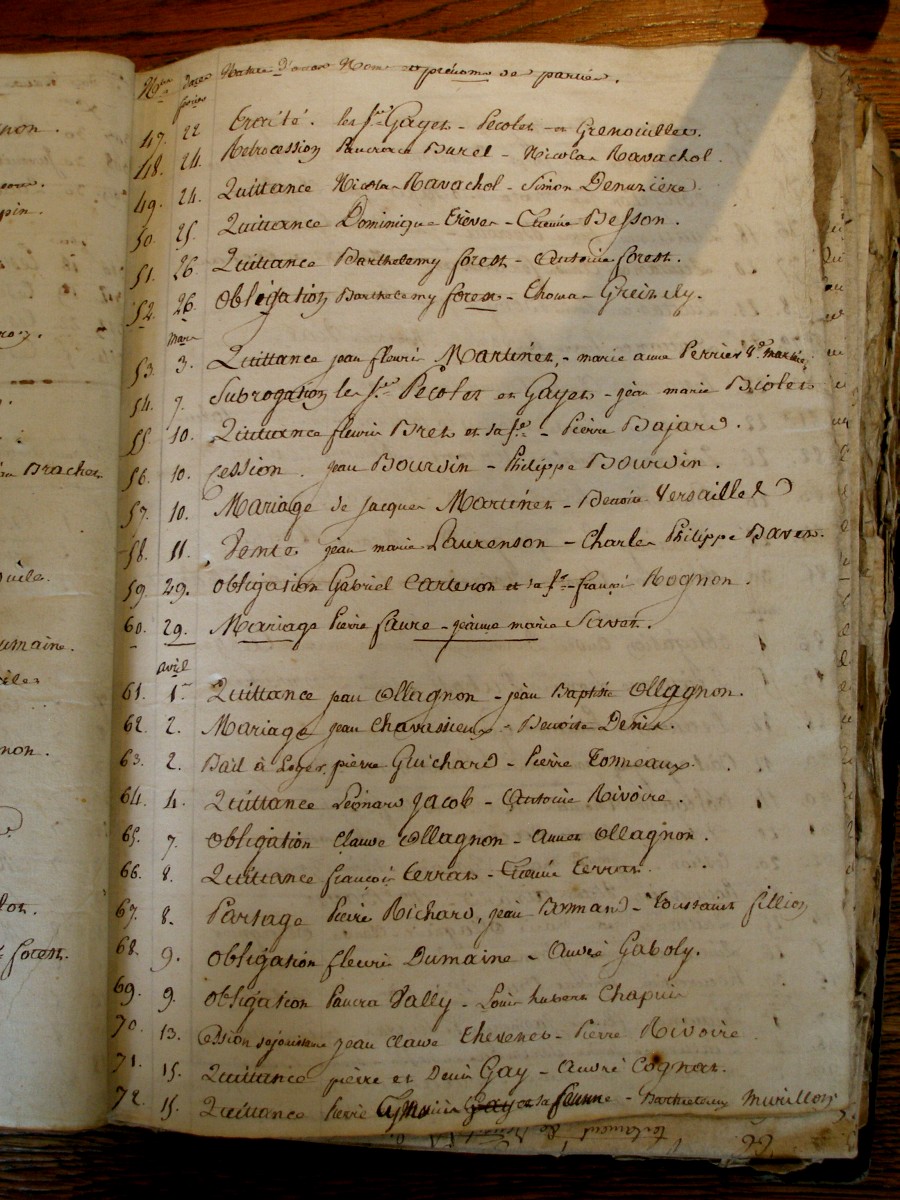 non.
pin.
Brachet
umaine.
non.
forest.
N.ros dates Nature d'actes Noms et prénoms des parties.
fevrier
47. 22 Traité. les Srs Gayet - Pecolet - et Grenouillet.
48. 24. Retrocession Pancrace Burel - Nicolas Ravachol.
49. 24. Quittance Nicolas Ravachol - Simon Denuzière.
50. 25. Quittance Dominique Trever - Etienne Besson.
51. 26. Quittance Barthelemy forest - Antoine forest.
52. 26. Obligation Barthelemy forest - Thomas
mars
53. 3. Quittance jean fleuri Martinet, - marie anne Perrier
54. 7. Subrogation les Srs Pecolet et Gayet - jean marie Bicolet
55 10. Quittance fleurie Bret et sa fe - Pierre Bajard.
56. 10. Cession. jean Bourdin - Philippe Bourdin.
57. 10. Mariage de jacques Martinet - Benoite Versaille
58. 11. Vente jean marie Laurenson - Charles Philippe Bavet.
59. 29. Obligation Gabriel Carteron et sa fe - françois Rognon.
60. 29. Mariage Pierre faure - jeanne marie Savet.
avril
61. 1er Quittance jean Ollagnon - jean Baptiste Ollagnon.
62. 2. Mariage jean Chavassieux - Benoite Denis.
63. 2. Bail à Loyer pierre Guichard - Pierre Tonneaux.
64. 4. Quittance Léonard Jacob - Antoine Rivoire.
65. 7. Obligation Claude Ollagnon - Annet Ollagnon.
66. 8. Quittance françois terras - Etienne terras.
67. 8. Partage Pierre Richard, jean Armand - Toussaint fillion
68. 9. Obligation fleurie Dumaine - André Gaboly.
69. 9. Obligation Pancrace Vally - Louis hubert Chapuis
70. 13. Cession jean Claude Thevenet - Pierre Rivoire
71. 15. Quittance pierre et Denis Gay - André Cognat.
72. 15. Quittance Pierre et sa femme - Barthelemy Murillon